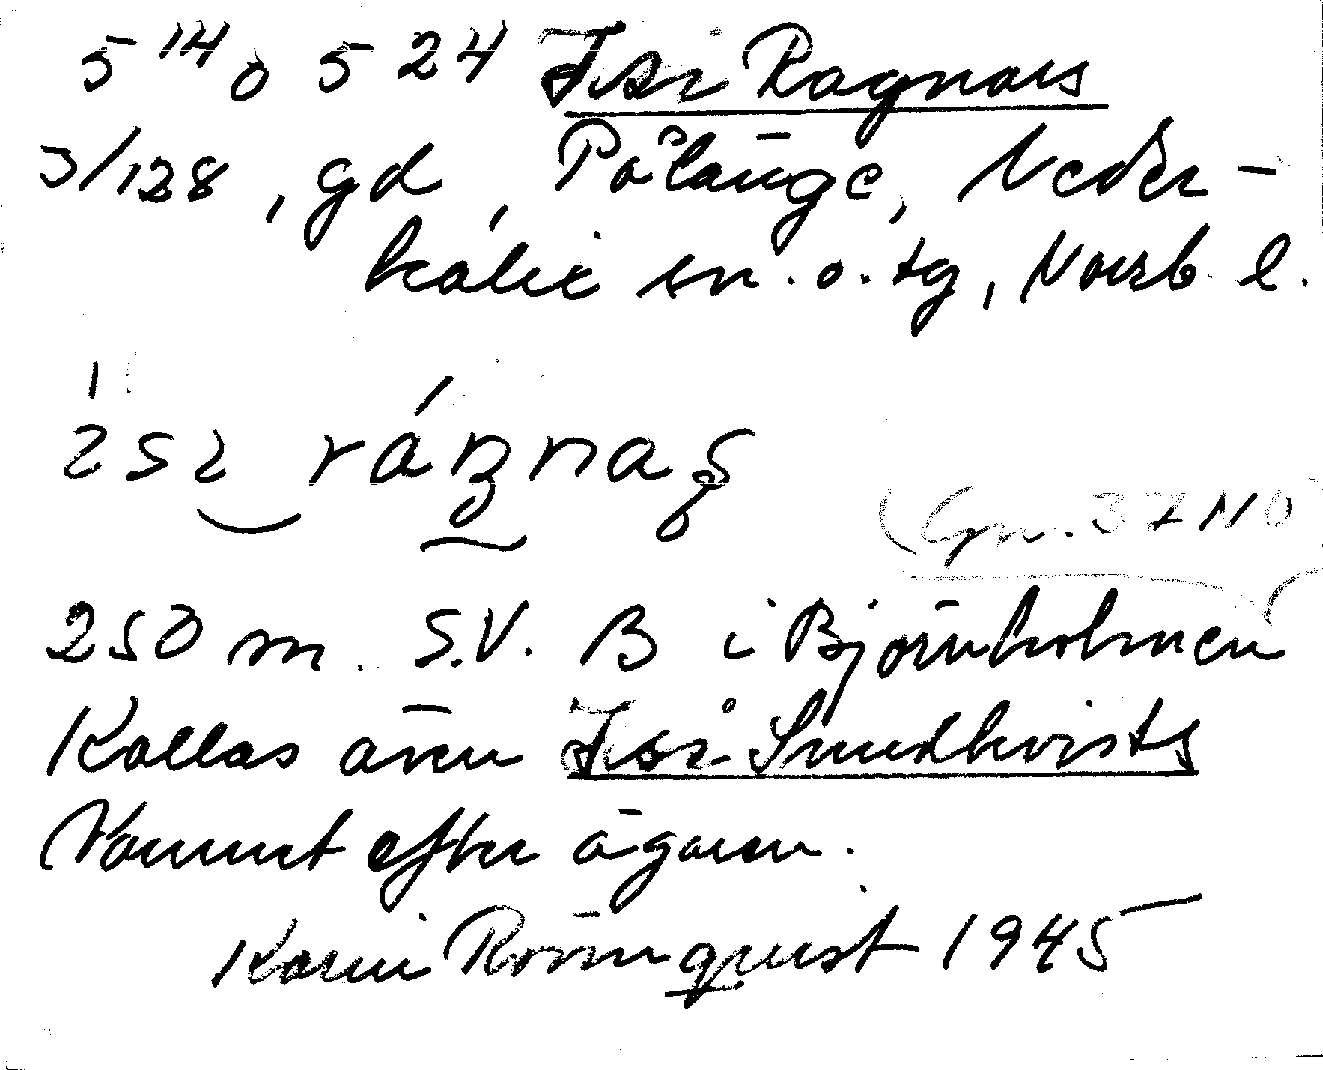 5 14 o 5 24 Issi Ragnars
3/128, gd, Pålänge, Neder-
kalix sn. o. tg, Norrb. l.
(Gn. 37 NO)
250 m. S.V. B i Björnholmen
Kallas även Issi Sundkvists
Namnet efter ägaren.
Karin Rönnquist 1945